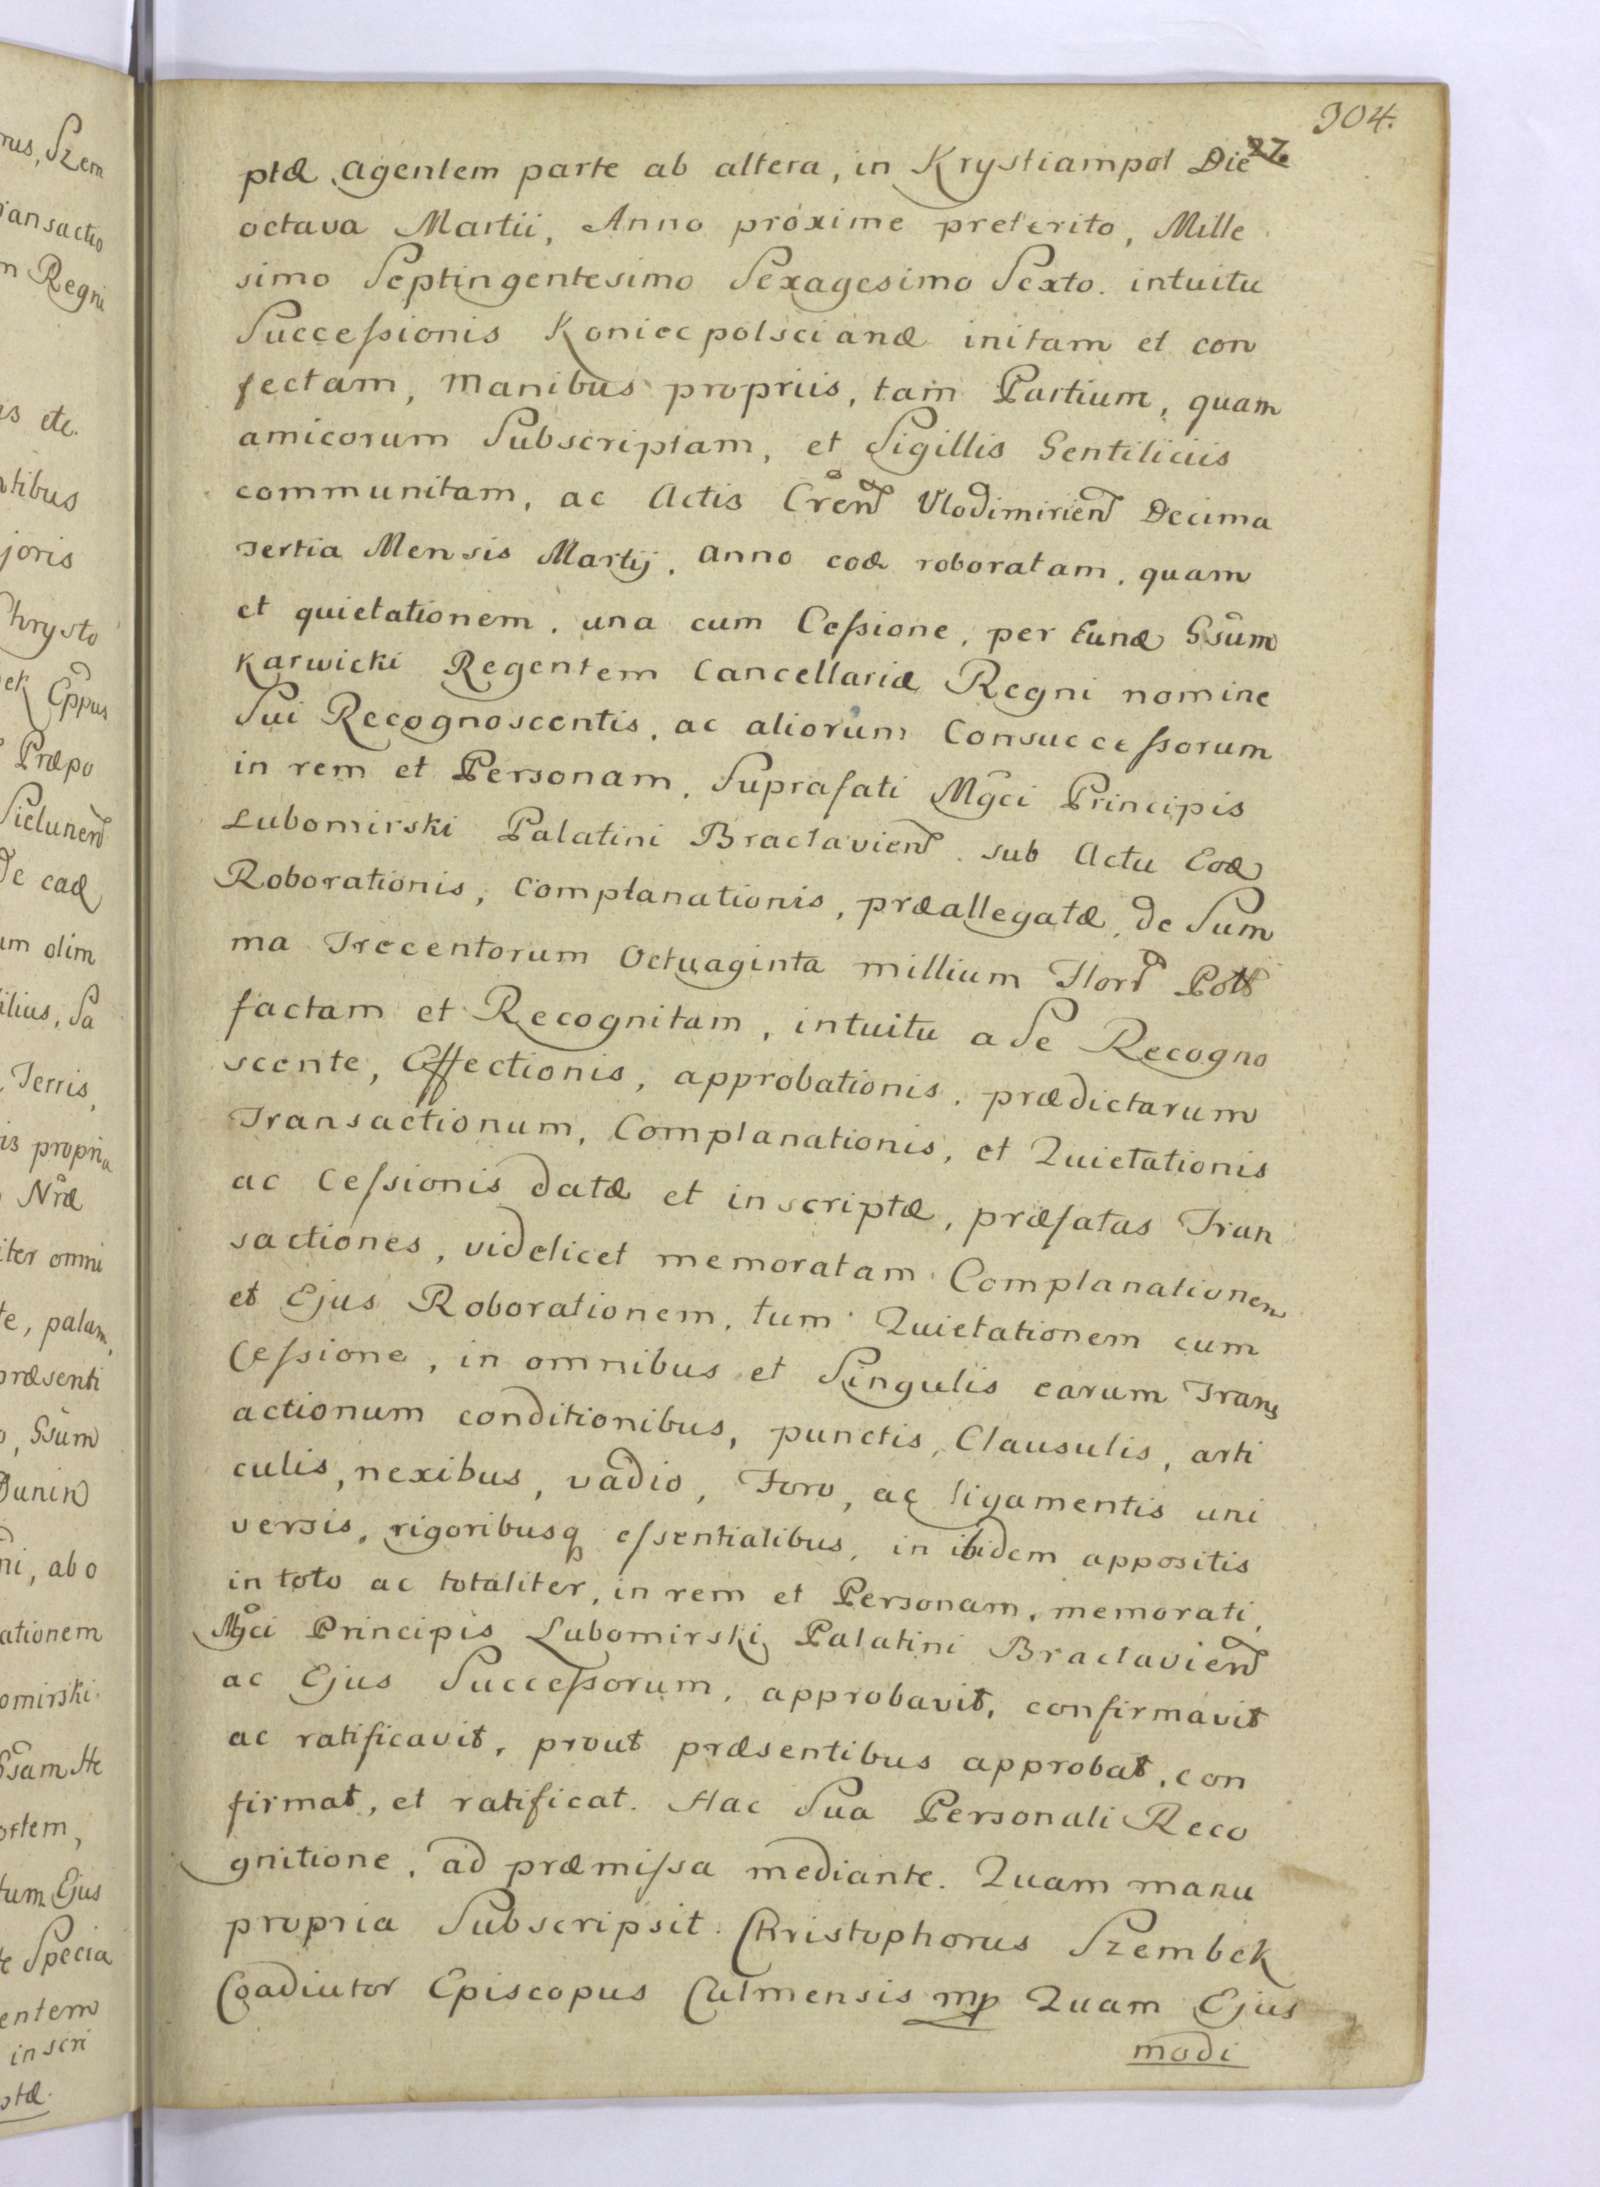 904.
27.
ptæ agentem parte ab altera, in Krystiampol Die
octava Martii, Anno proxime preterito, Mille
simo Septingentesimo Sexagesimo Sexto. intuitu
Successionis Koniecpolscianæ initam et con
fectam, manibus propriis, tam Partium, quam
amicorum Subscriptam, et Sigillis Gentiliciis
communitam, ac Actis Cren Vlodimirien Decima
tertia Mensis Martij, anno eod roboratam, quam
et quietationem, una cum Cessione, per Eund Gsum
Karwicki Regentem Cancellariæ Regni nomine
Sui Recognoscentis, ac aliorum Consuccessorum
in rem et Personam, Suprafati Mgci Principis
Lubomirski Palatini Braclavien sub Actu Eod
Roborationis, Complanationis, præallegatæ, de Sum
ma Trecentorum Octuaginta millium Flor Poll
factam et Recognitam, intuitu a Se Recogno
scente, Effectionis, approbationis, prædictarum
Transactionum, Complanationis, et Quietationis
ac Cessionis datæ et inscriptæ, præfatas Tran
sactiones, videlicet memoratam Complanationem
et Ejus Roborationem, tum Quietationem cum
Cessione, in omnibus et Singulis earum Trans
actionum conditionibus, punctis, Clausulis, arti
culis, nexibus, vadio, Foro, ac ligamentis uni
versis, rigoribusq essentialibus, in ibidem appositis
in toto ac totaliter, in rem et Personam, memorati,
Mgci Principis Lubomirski Palatini Braclavien
ac Ejus Successorum, approbavit, confirmavit
ac ratificavit, prout præsentibus approbat, con
firmat, et ratificat. Hac Sua Personali Reco
gnitione, ad præmissa mediante. Quam manu
propria Subscripsit. Christophorus Szembek
Coadiutor Episcopus Culmensis mp Quam Ejus
modi